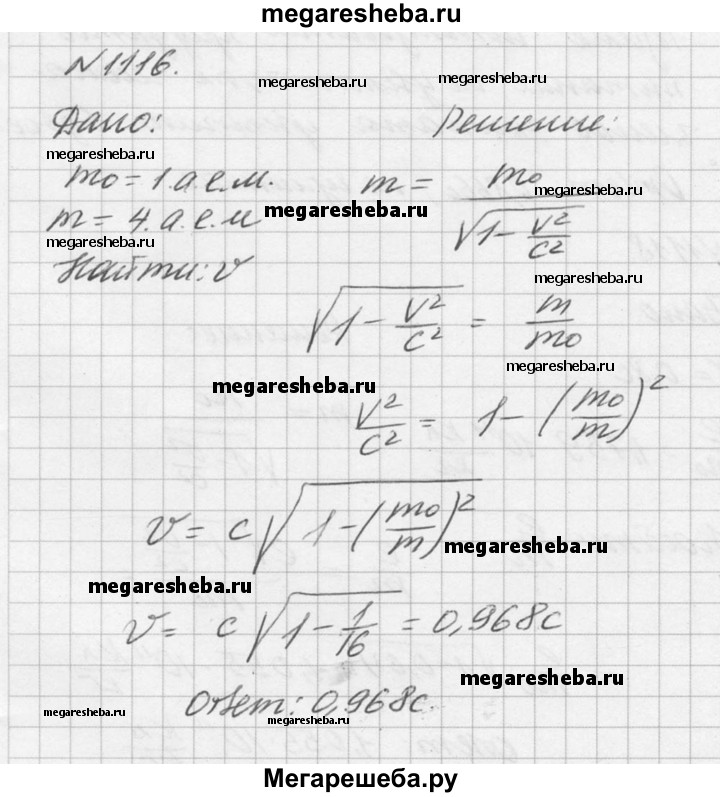 megaresheba.ru
N 1116.
megaresheba.ru megaresheba.ru
Дано: Решение:
megaresheba.ru
m0 = 1.а.е.м. m = m0 / √(1 - V²/C²)
megaresheba.ru
megaresheba.ru
m = 4.а.е.м
megaresheba.ru
Найти: v
megaresheba.ru
√(1 - V²/C²) = m/m0
megaresheba.ru
megaresheba.ru
V²/C² = 1 - (m0/m)²
v = c√(1 - (m0/m)²)
megaresheba.ru
megaresheba.ru
v = c√(1 - 1/16) = 0,968c
megaresheba.ru
Ответ: 0,968c.
megaresheba.ru megaresheba.ru
Мегарешеба.ру